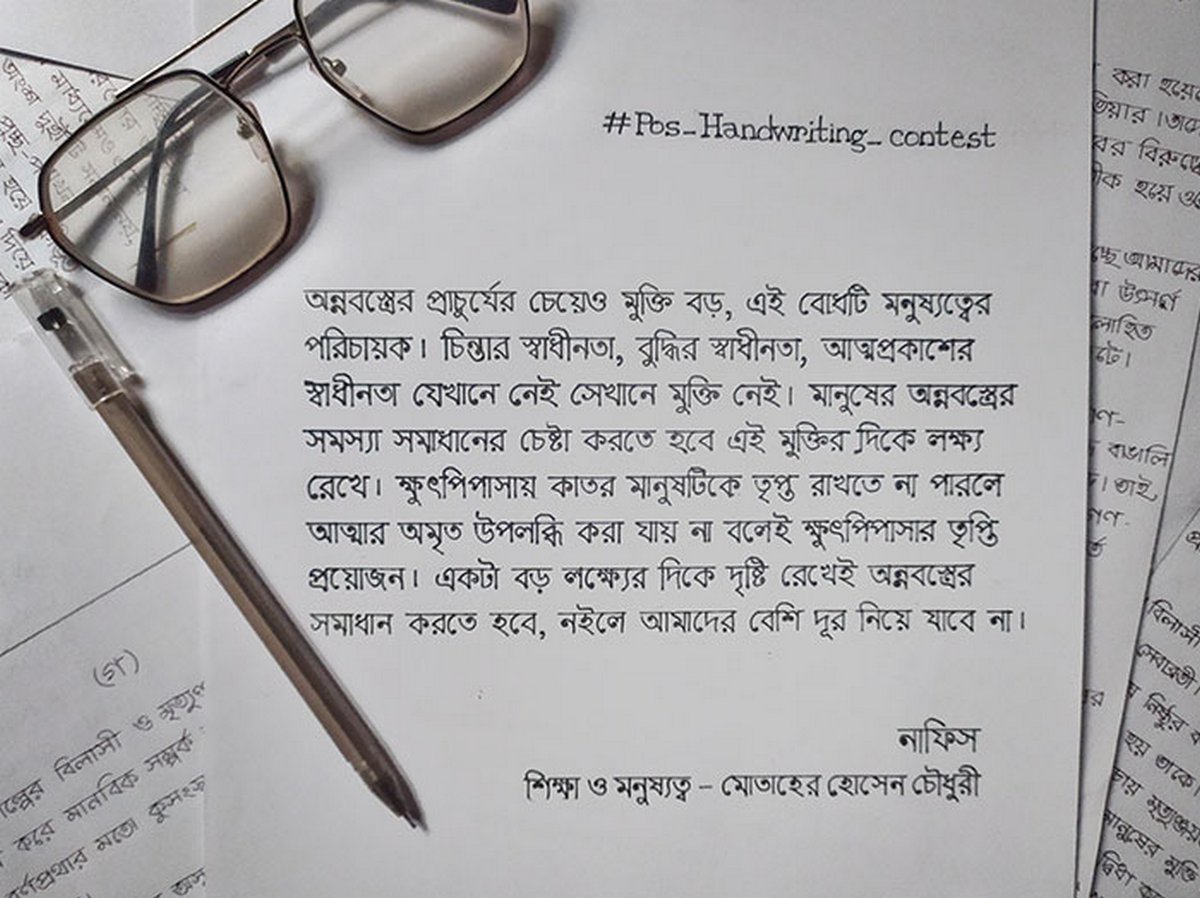 #Pos_Handwriting_contest
অন্নবস্ত্রের প্রাচুর্যের চেয়েও মুক্তি বড়, এই বোধটি মনুষ্যত্বের
পরিচায়ক। চিন্তার স্বাধীনতা, বুদ্ধির স্বাধীনতা, আত্মপ্রকাশের
স্বাধীনতা যেখানে নেই সেখানে মুক্তি নেই। মানুষের অন্নবস্ত্রের
সমস্যা সমাধানের চেষ্টা করতে হবে এই মুক্তির দিকে লক্ষ্য
রেখে। ক্ষুৎপিপাসায় কাতর মানুষটিকে তৃপ্ত রাখতে না পারলে
আত্মার অমৃত উপলব্ধি করা যায় না বলেই ক্ষুৎপিপাসার তৃপ্তি
প্রয়োজন। একটা বড় লক্ষ্যের দিকে দৃষ্টি রেখেই অন্নবস্ত্রের
সমাধান করতে হবে, নইলে আমাদের বেশি দূর নিয়ে যাবে না।
নাফিস
শিক্ষা ও মনুষ্যত্ব - মোতাহের হোসেন চৌধুরী
(গ)
বিলাসী ও
করে মানবিক সম্পর্ক
মতো
করা হয়েছে
বিরুদ্ধে
হয়ে
আমাদের
উৎসর্গ
বাঙালি
তাই
বিলাসী
নিষ্ঠুর
হয় তাকে।
মানুষের মুক্তি
দ্বিধা